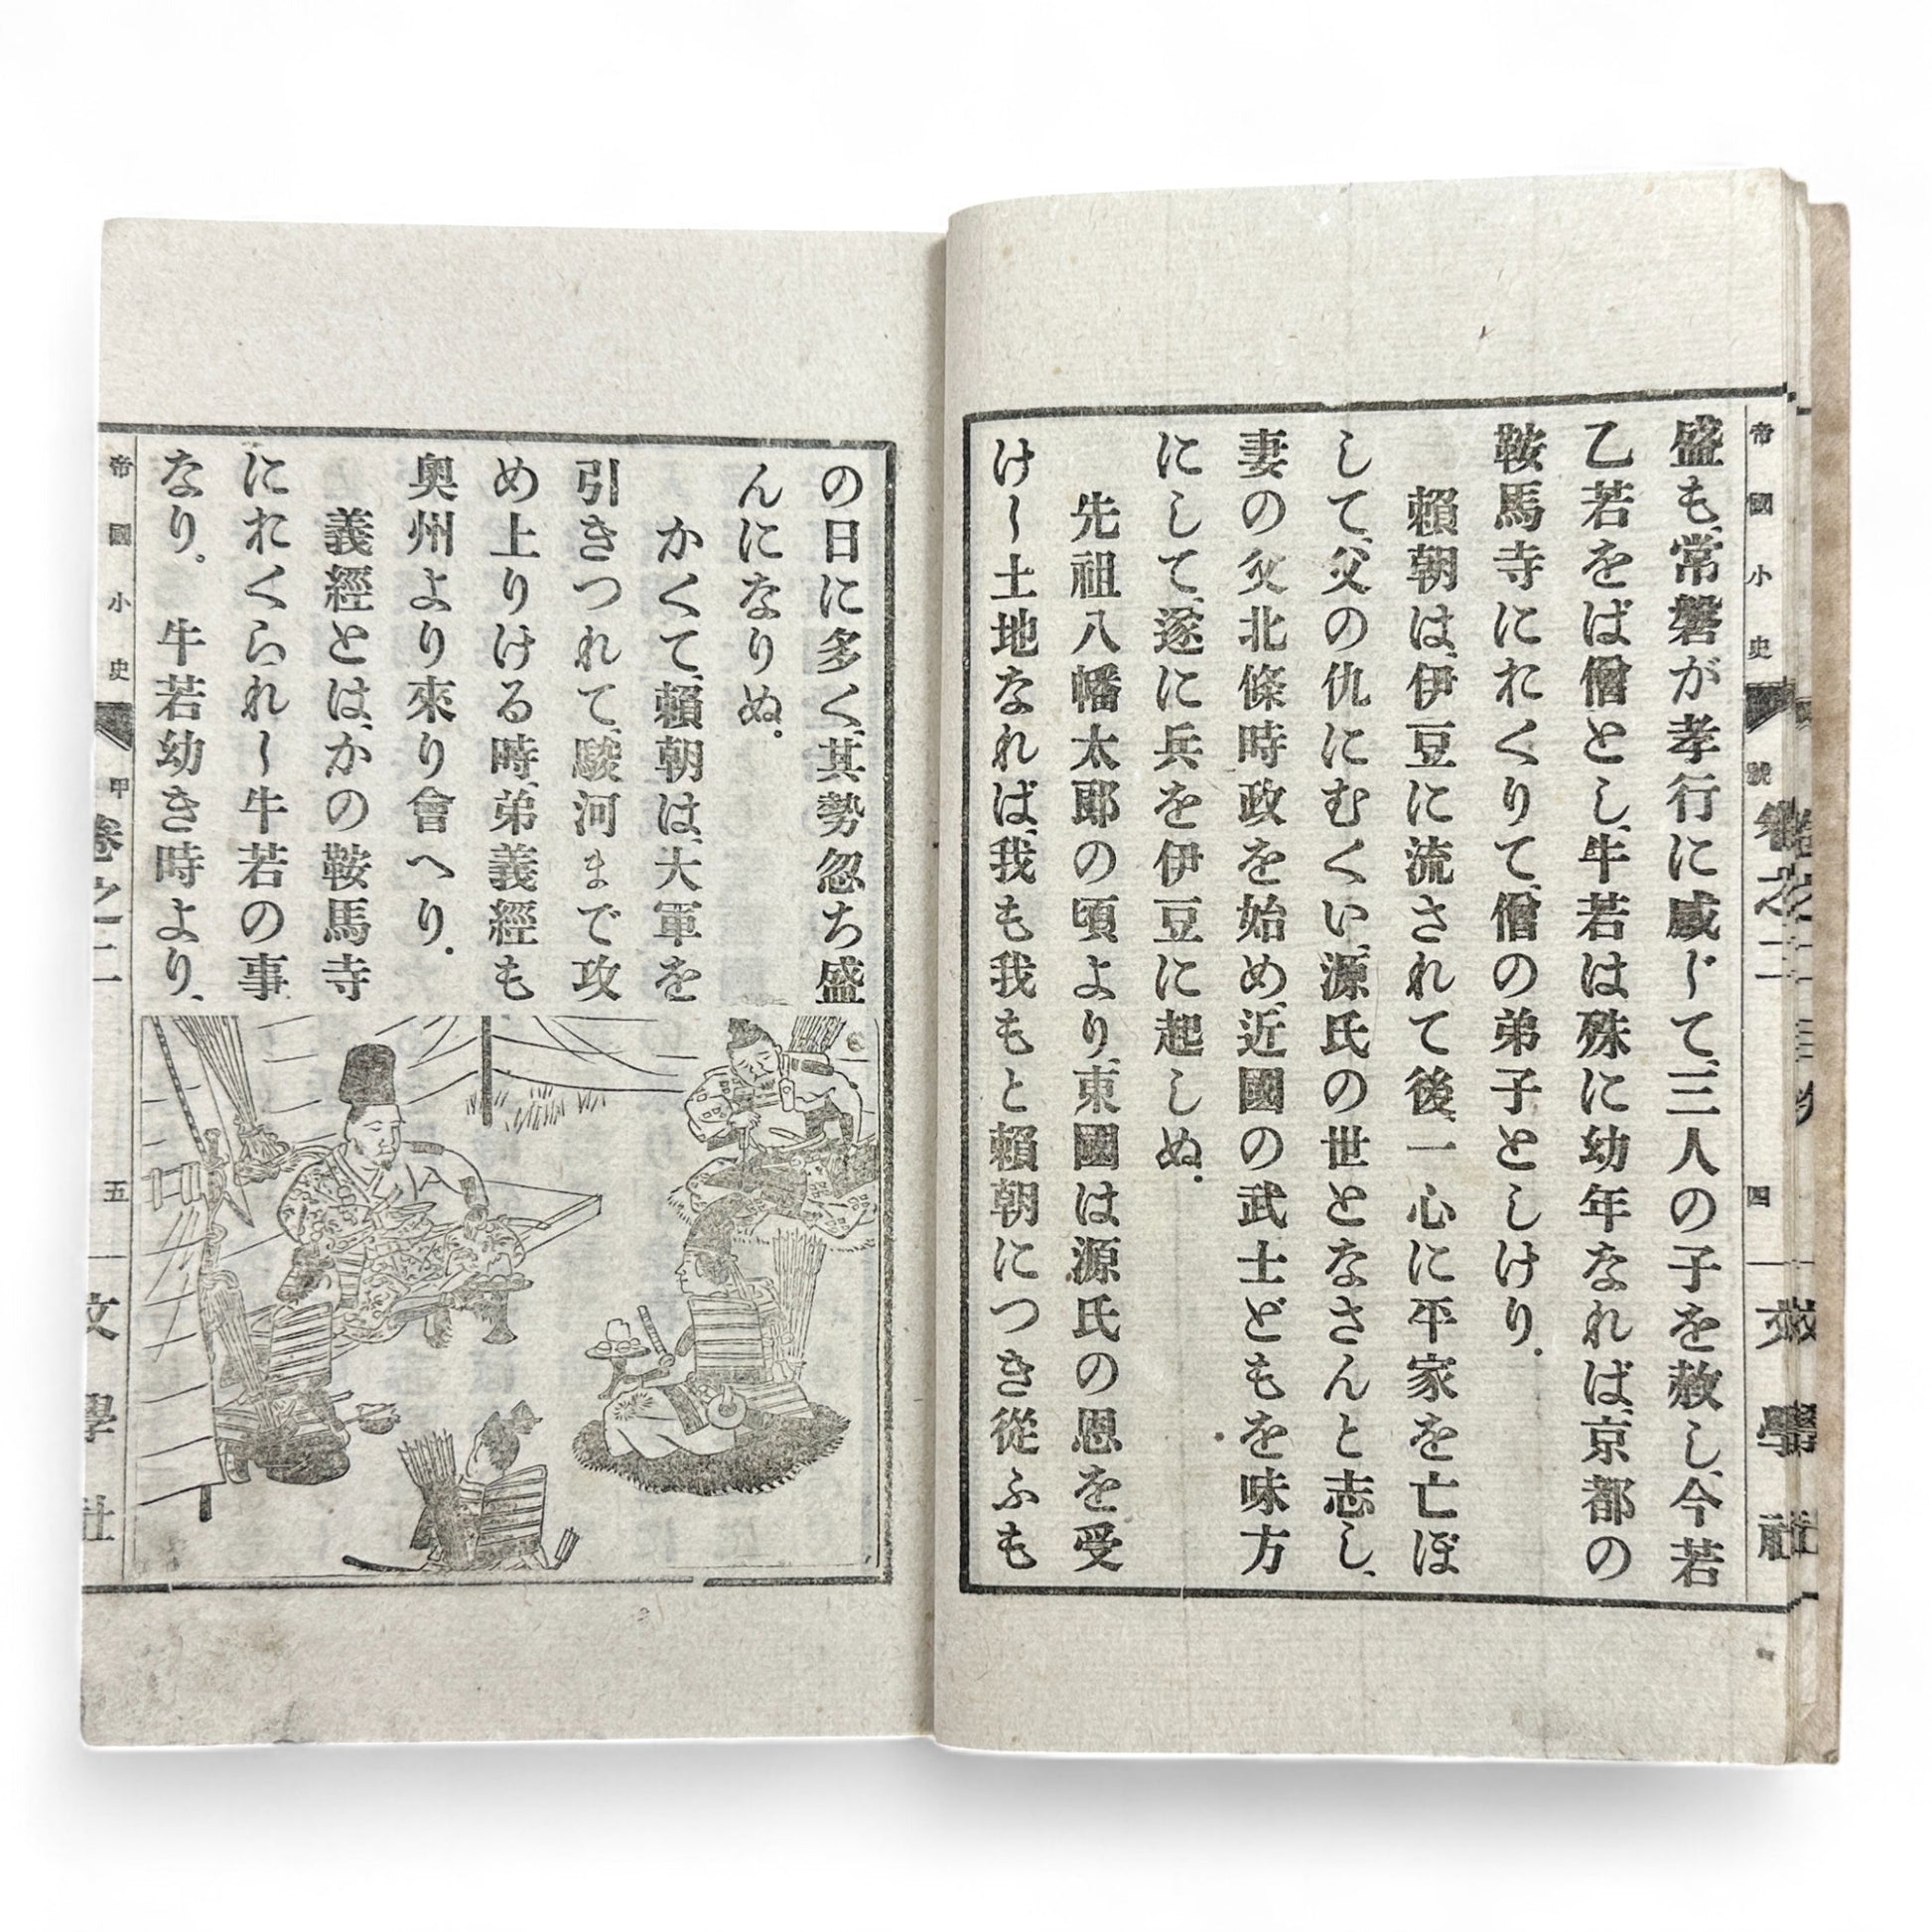 帝國小史 甲號 卷之二 四 文學社
盛も、常磐が孝行に感じて、三人の子を赦し、今若
乙若をば僧とし、牛若は殊に幼年なれば、京都の
鞍馬寺におくりて、僧の弟子としけり.
賴朝は、伊豆に流されて後、一心に平家を亡ぼ
して、父の仇にむくい、源氏の世となさんと志し、
妻の父北條時政を始め、近國の武士どもをも味方
にして、遂に兵を伊豆に起しぬ.
先祖八幡太郎の頃より、東國は源氏の恩を受
けし土地なれば、我も我もと賴朝につき從ふも
の日に多く、其勢忽ち盛
んになりぬ.
かくて、賴朝は、大軍を
引きつれて、駿河まで攻
め上りける時、弟義經も
奧州より來り會へり.
義經とは、かの鞍馬寺
におくられし牛若の事
なり. 牛若幼き時より、
帝國小史 甲 卷之二 五 文學社